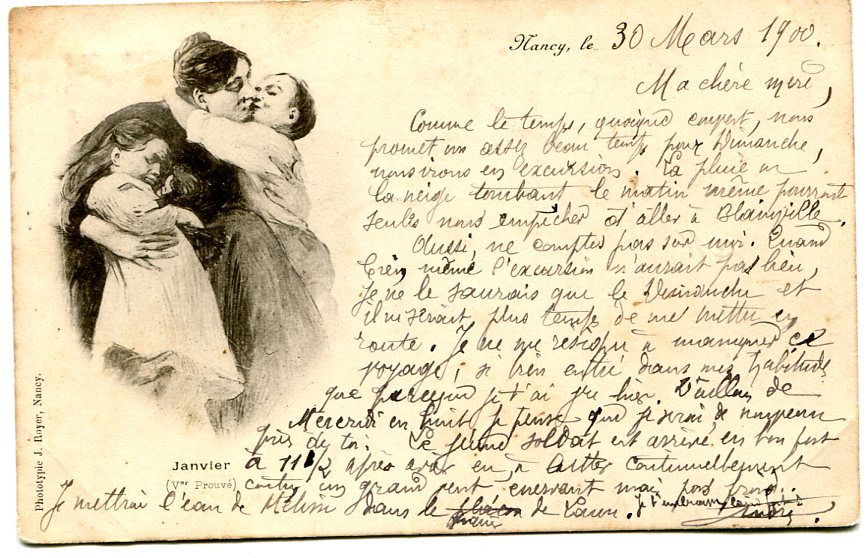 Nancy, le 30 Mars 1900.
Ma chère mère,
Comme le temps, quoique couvert, nous
promet un assez beau temps pour Dimanche,
nous irons en excursion. La pluie ou
la neige tombant le matin même pourront
seules nous empêcher d'aller à Blainville.
Aussi, ne comptes pas sur moi. Quand
bien même l'excursion n'aurait pas lieu,
je ne le saurais que le Dimanche et
il ne serait plus temps de me mettre en
route. Je ne me résous à manquer ce
voyage, si bien entré dans mes habitudes
que parceque je t'ai vu hier. D'ailleurs de
Mercredi en huit je pense que je serai de nouveau
près de toi. Le grand soldat est arrivé en bon port
à 11h 1/2 après avoir eu à lutter continuellement
contre un grand vent énervant mais pas froid.
Je mettrai l'eau de Mélisse dans le de
Je t'embrasse
Janvier
(Vor Prouvé)
Phototypie J. Royer, Nancy.